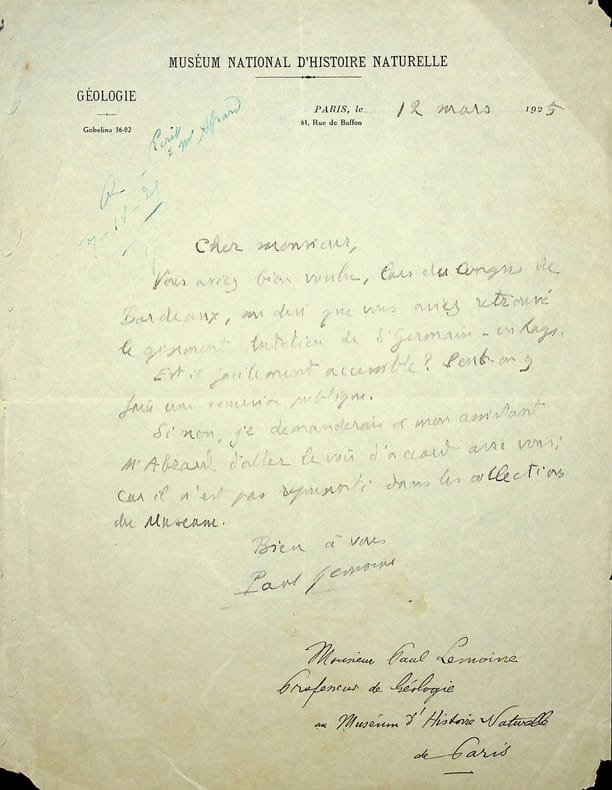 MUSÉUM NATIONAL D'HISTOIRE NATURELLE
GÉOLOGIE
Gobelins 36-02
PARIS, le 12 mars 1925
61, Rue de Buffon
Ecrit
à Mr Abrard
Cher monsieur,
Vous aviez bien voulu, lors du Congrès de
Bordeaux, me dire que vous aviez retrouvé
le gisement Lutétien de St Germain-en-Laye.
Est il facilement accessible? Peut-on y
faire une excursion publique.
Si non, je demanderais à mon assistant
Mr Abrard, d'aller le voir d'accord avec vous;
car il n'est pas représenté dans les collections
du Museum.
Bien à vous
Paul Lemoine
Monsieur Paul Lemoine
Professeur de Géologie
au Muséum d'Histoire Naturelle
de Paris